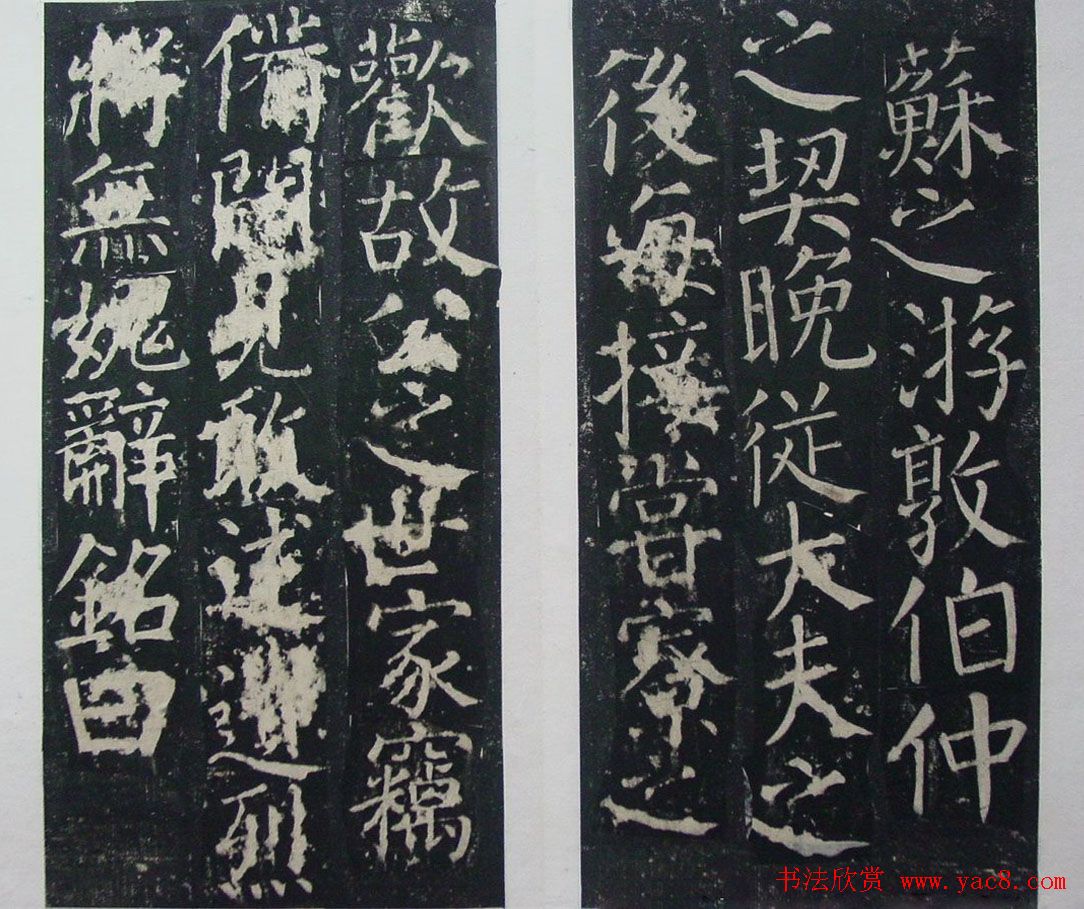 蘇之游敦伯仲
之契晚從大夫之
後每接嘗寮之
歡故公之世家竊
備聞見敢述遺烈
將無媿辭銘曰
书法欣赏 www.yac8.com